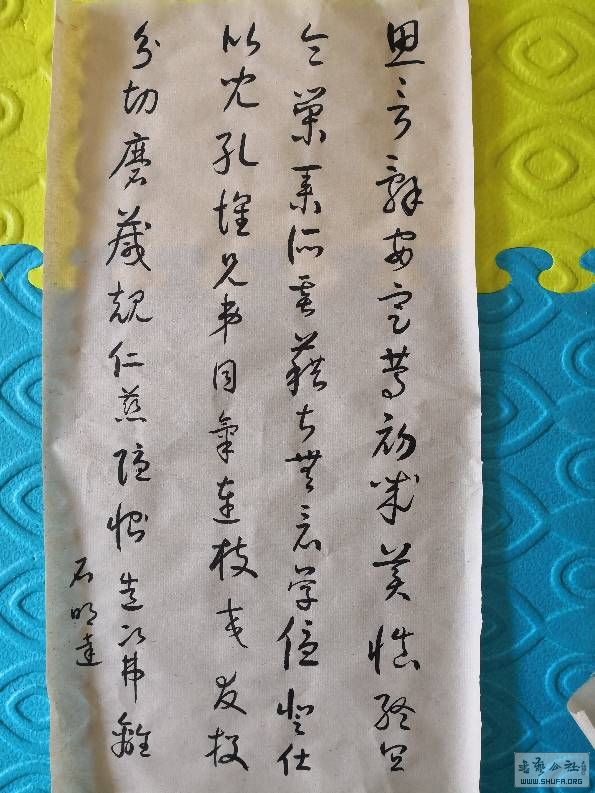 思言辭安定篤初誠美慎終宜
令榮業所基藉甚無竟學優登仕
比兒孔懷兄弟同氣連枝交友投
分切磨箴規仁慈隱惻造次弗離
石明達
WWW.SHUFA.ORG